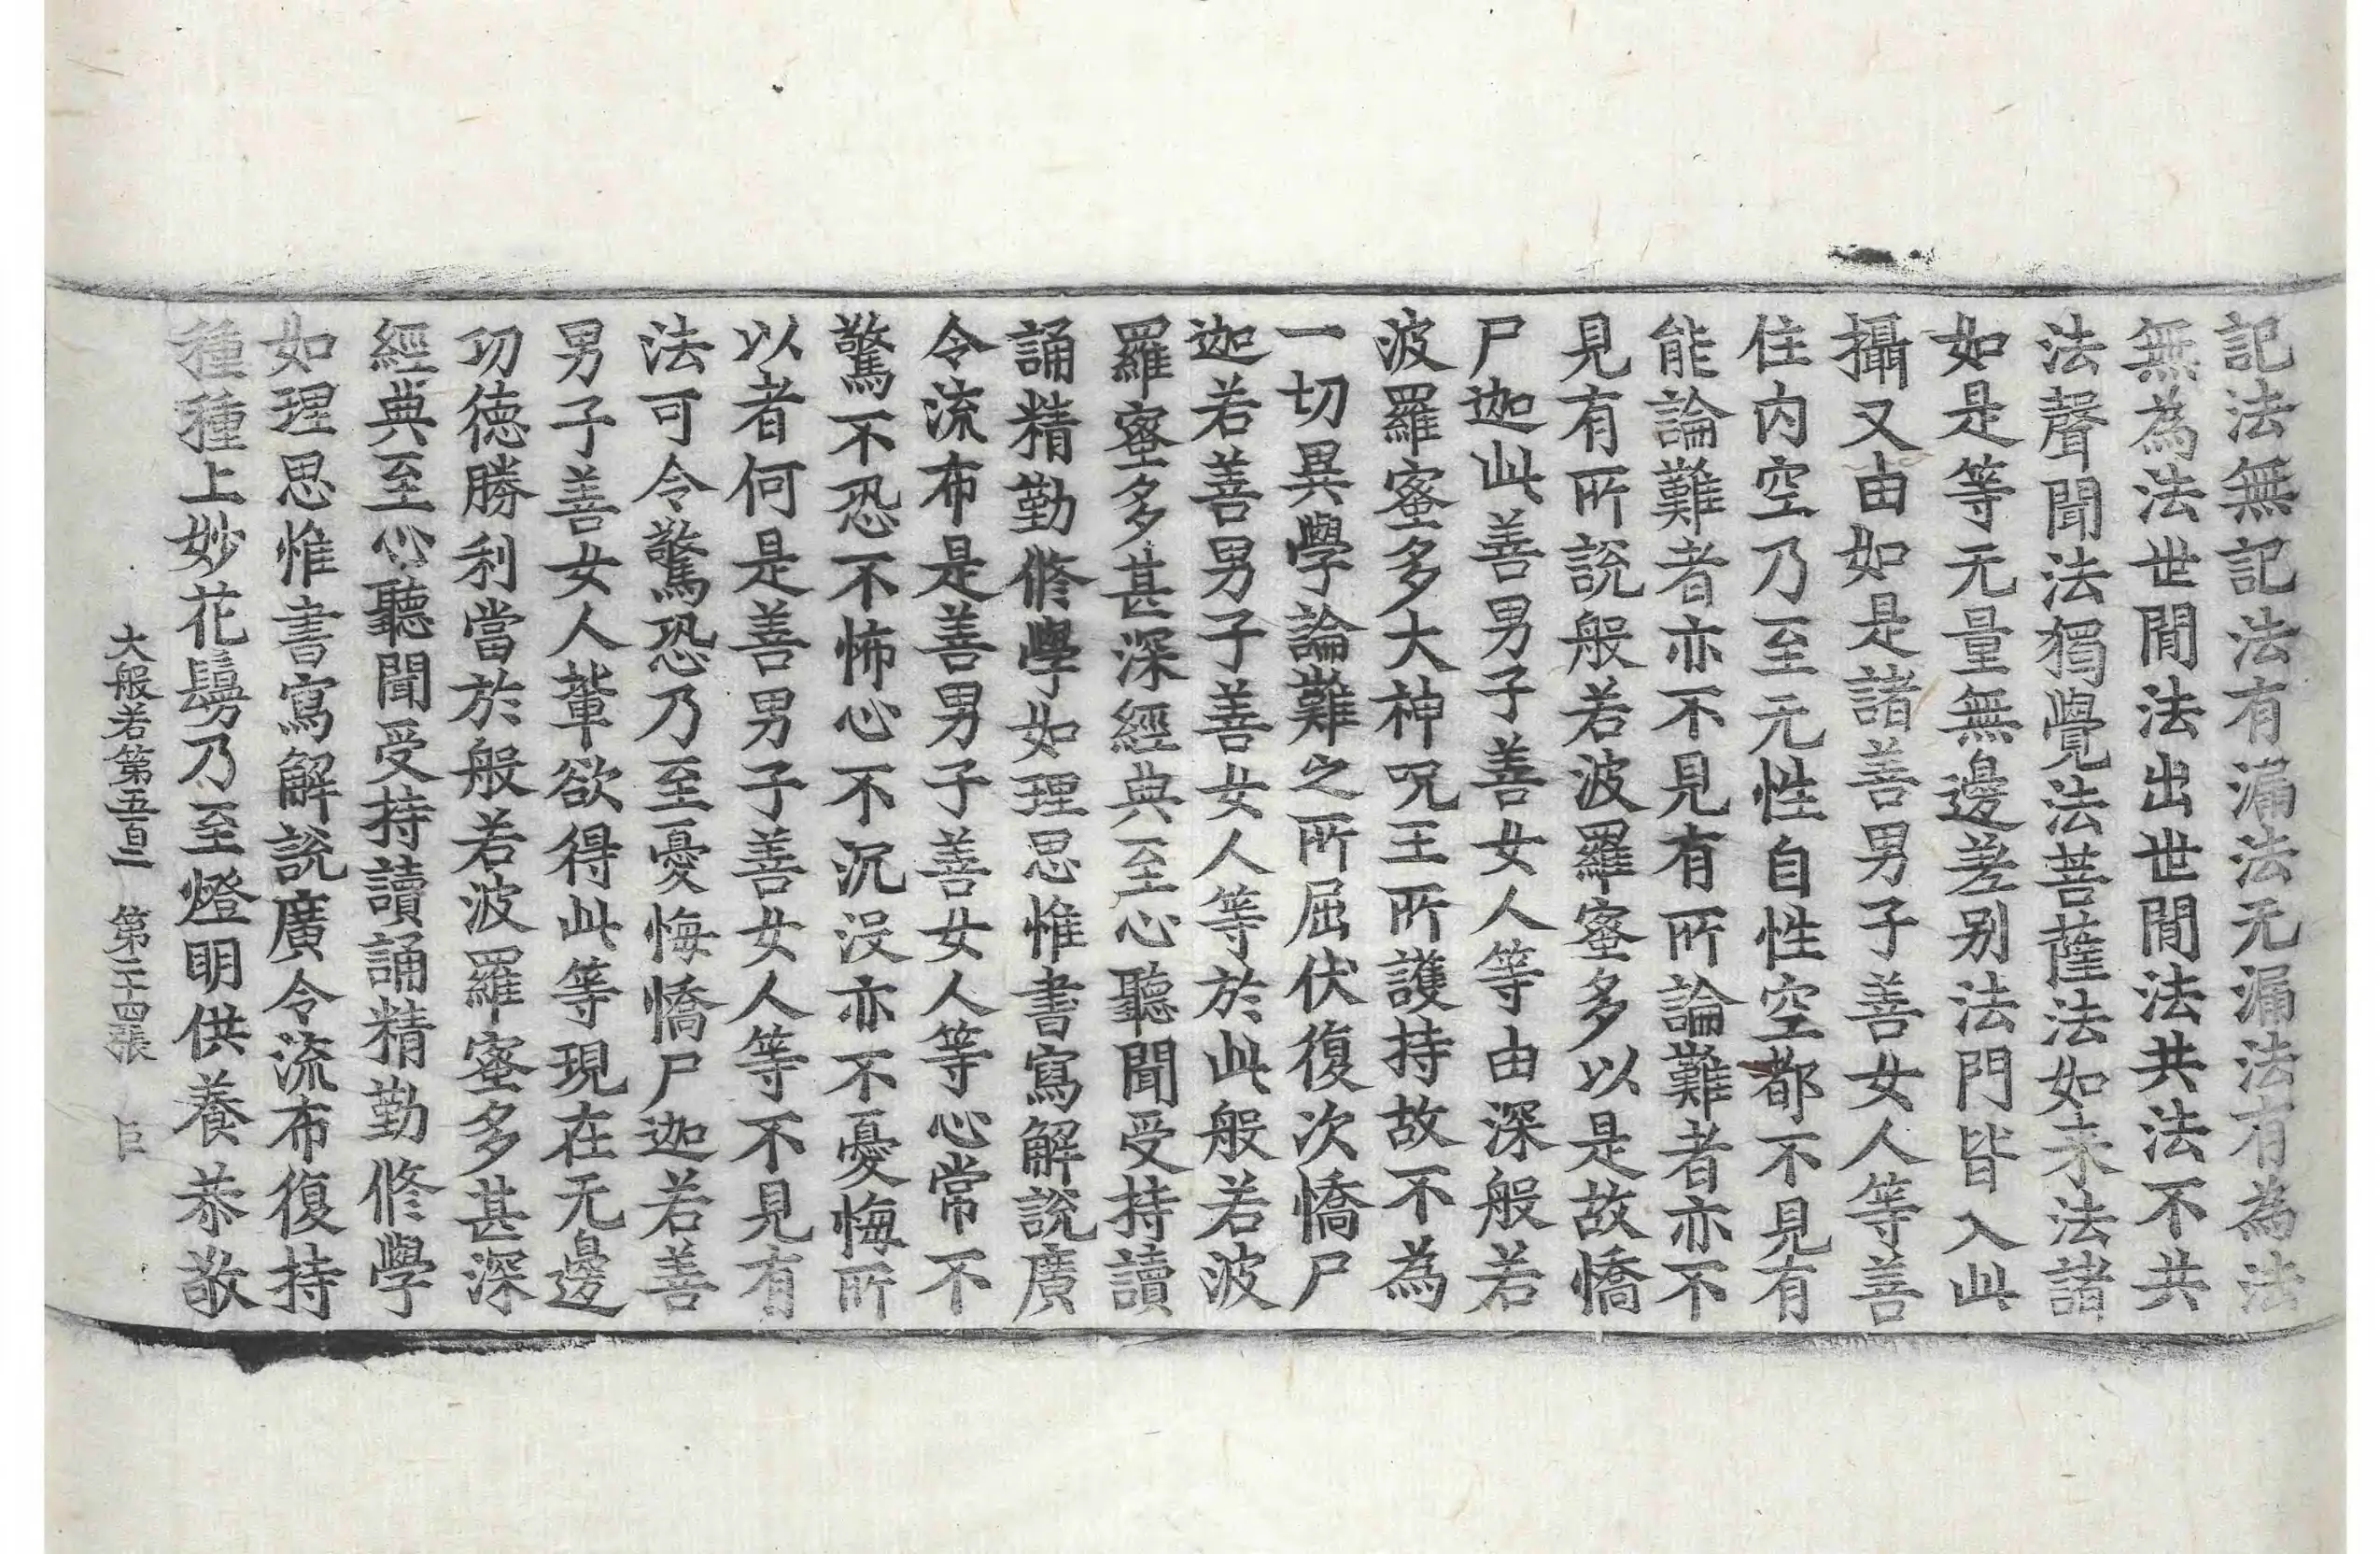 記法無記法有漏法无漏法有為法
無為法世閒法出世閒法共法不共
法聲聞法獨覺法菩薩法如来法諸
如是等无量無邊差别法門皆入此
攝又由如是諸善男子善女人等善
住内空乃至无性自性空都不見有
能論難者亦不見有所論難者亦不
見有所說般若波羅蜜多以是故憍
尸迦此善男子善女人等由深般若
波羅蜜多大神呪王所護持故不為
一切異學論難之所屈伏復次憍尸
迦若善男子善女人等於此般若波
羅蜜多甚深經典至心聽聞受持讀
誦精勤修學如理思惟書寫解說廣
令流布是善男子善女人等心常不
驚不恐不怖心不沉沒亦不憂悔所
以者何是善男子善女人等不見有
法可令驚恐乃至憂悔憍尸迦若善
男子善女人輩欲得此等現在无邊
功德勝利當於般若波羅蜜多甚深
經典至心聽聞受持讀誦精勤修學
如理思惟書寫解說廣令流布復持
種種上妙花鬘乃至燈明供養恭敬
大般若第五百二 第二十四張 臣